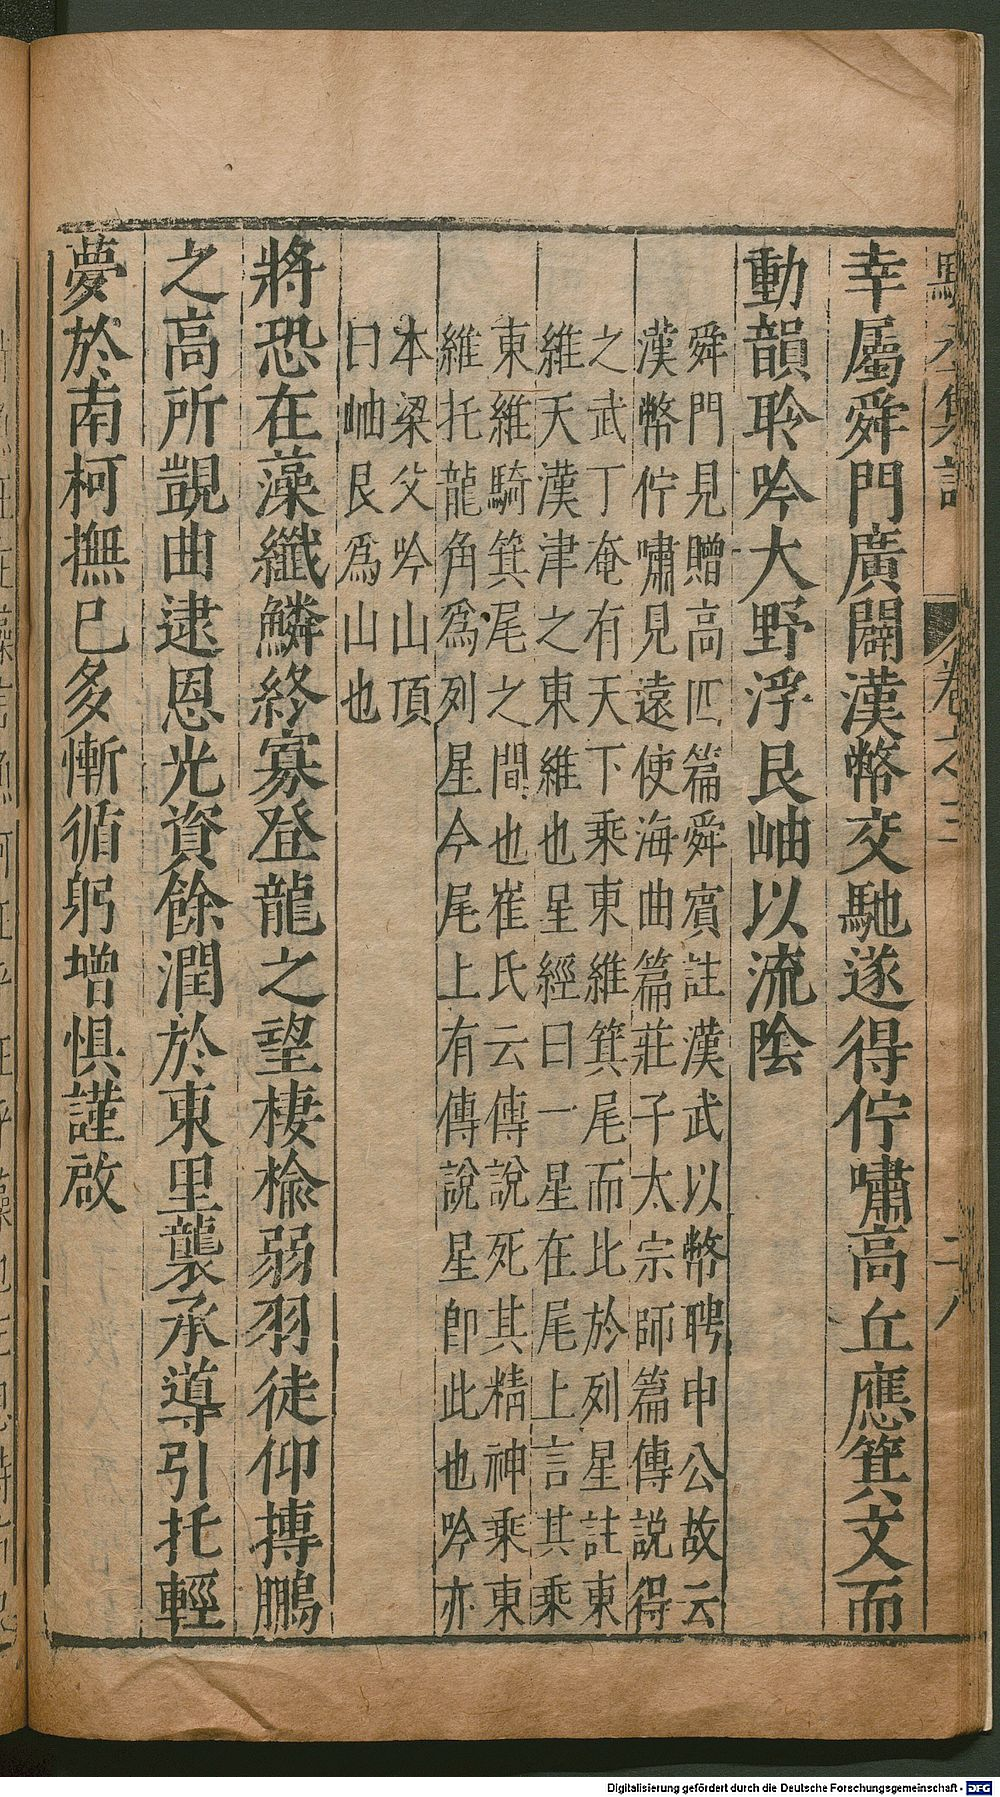 幸屬舜門廣闢漢幣交馳遂得佇嘯高丘應箕文而
動韻聆吟大野浮艮岫以流陰
舜門見贈高四篇舜賔註漢武以幣聘申公故云
漢幣佇嘯見遠使海曲篇莊子太宗師篇傳說得
之武丁奄有天下乘東維箕尾而比於列星註東
維天漢津之東維也星經曰一星在尾上言其乘
東維騎箕尾之間也崔氏云傳說死其精神乘東
維托龍角爲列星今尾上有傳說星卽此也吟亦
本梁父吟山頂
曰岫艮爲山也
將恐在藻纖鱗終寡登龍之望棲楡弱羽徒仰摶鵬
之高所覬曲逮恩光資餘潤於東里襲承導引托輕
夢於南柯撫已多慚循躬增惧謹啟
卷之三
二八
Digitalisierung gefördert durch die Deutsche Forschungsgemeinschaft - DFG